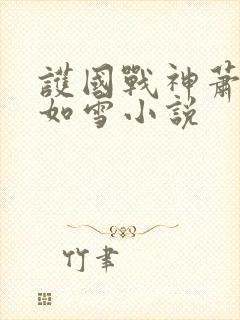 護國戰神蕭
如雪小說
竹聿